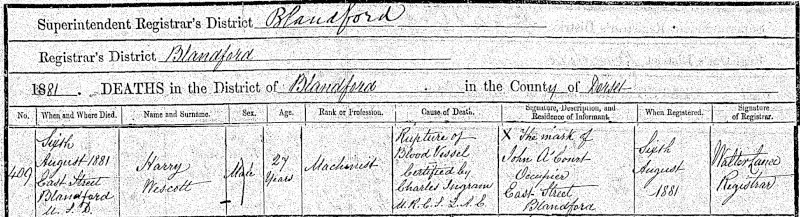 Superintendent Registrar's District Blandford
Registrar's District Blandford
1881. DEATHS in the District of Blandford in the County of Dorset
No. When and Where Died. Name and Surname. Sex. Age. Rank or Profession. Cause of Death. Signature, Description, and Residence of Informant. When Registered. Signature of Registrar.
409
Sixth
August 1881
East Street
Blandford
U.S.D.
Harry
Wescott
Male
27
Years
Machinist
Rupture of
Blood Vessel
Certified by
Charles Ingram
M.R.C.S. L.A.C.
X The mark of
John A'Court
Occupier
East Street
Blandford
Sixth
August
1881
Walter Lance
Registrar